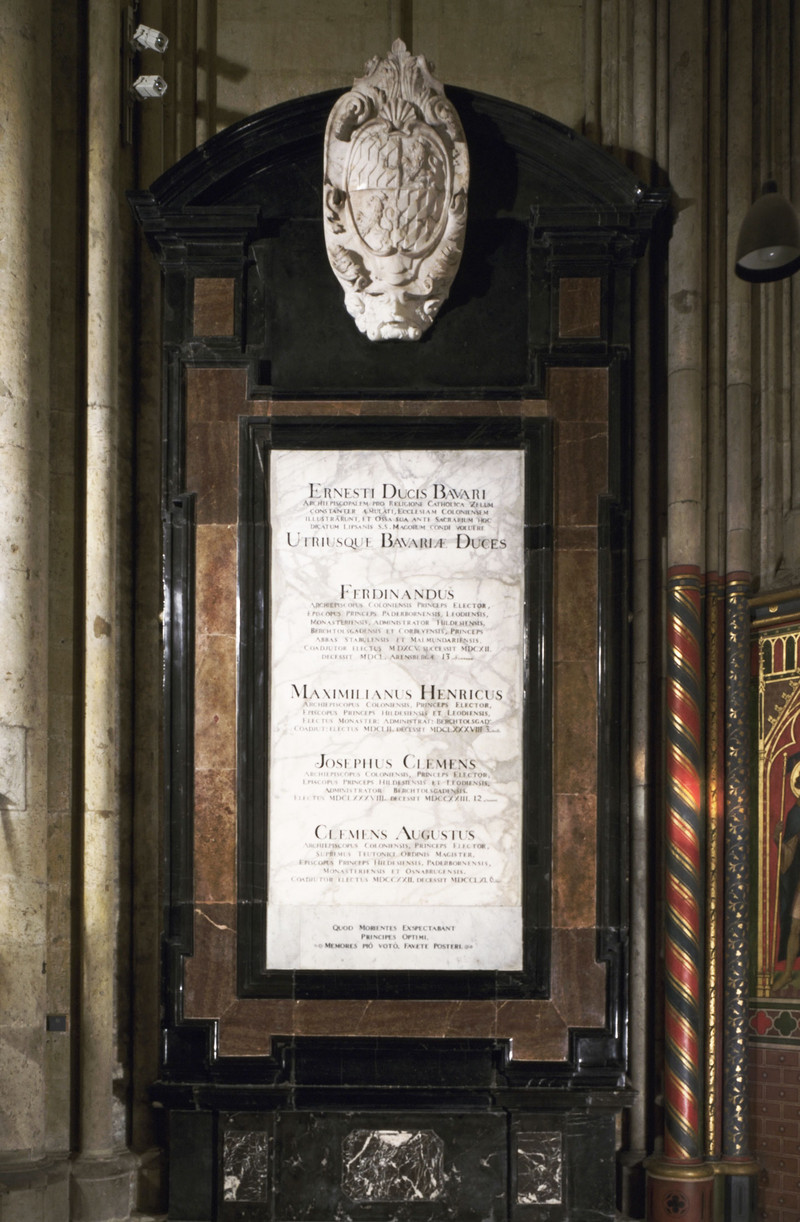 ERNESTI DUCIS BAVARI
ARCHIEPISCOPALEM PRO RELIGIONE CATHOLICA ZELUM
CONSTANTER ÆMULATI, ECCLESIAM COLONIENSEM
ILLUSTRARUNT, ET OSSA SUA ANTE SACRARIUM HIC
DICATUM LIPSANIS S.S. MAGORUM CONDI VOLUERE
UTRIUSQUE BAVARIÆ DUCES
FERDINANDUS
ARCHIEPISCOPUS COLONIENSIS PRINCEPS ELECTOR,
EPISCOPUS PRINCEPS PADERBORNENSIS, LEODIENSIS,
MONASTERIENSIS, ADMINISTRATOR HILDESIENSIS,
BERCHTOLSGADENSIS ET CORBEYENSIS, PRINCEPS
ABBAS STABULENSIS ET MALMUNDARIENSIS,
COADJUTOR ELECTUS MDXCV. SUCCESSIT MDCXII.
DECESSIT MDCL. ARENSBERGÆ 13
MAXIMILIANUS HENRICUS
ARCHIEPISCOPUS COLONIENSIS, PRINCEPS ELECTOR,
EPISCOPUS PRINCEPS HILDESIENSIS ET LEODIENSIS,
ELECTUS MONASTER: ADMINISTRAT: BERCHTOLSGAD:
COADIUT: ELECTUS MDCLII. DECESSIT MDCLXXXVIII 3
JOSEPHUS CLEMENS
ARCHIEPISCOPUS COLONIENSIS, PRINCEPS ELECTOR,
EPISCOPUS PRINCEPS HILDESIENSIS ET LEODIENSIS,
ADMINISTRATOR BERCHTOLSGADENSIS.
ELECTUS MDCLXXXVIII. DECESSIT MDCCXXIII. 12
CLEMENS AUGUSTUS
ARCHIEPISCOPUS COLONIENSIS, PRINCEPS ELECTOR,
SUPREMUS TEUTONICI ORDINIS MAGISTER,
EPISCOPUS PRINCEPS HILDESIENSIS, PADERBORNENSIS,
MONASTERIENSIS ET OSNABRUGENSIS,
COADJUTOR ELECTUS MDCCXXII. DECESSIT MDCCLXI. 6
QUOD MORIENTES EXSPECTABANT
PRINCIPES OPTIMI,
MEMORES PIÔ VOTÔ, FAVETE POSTERI.